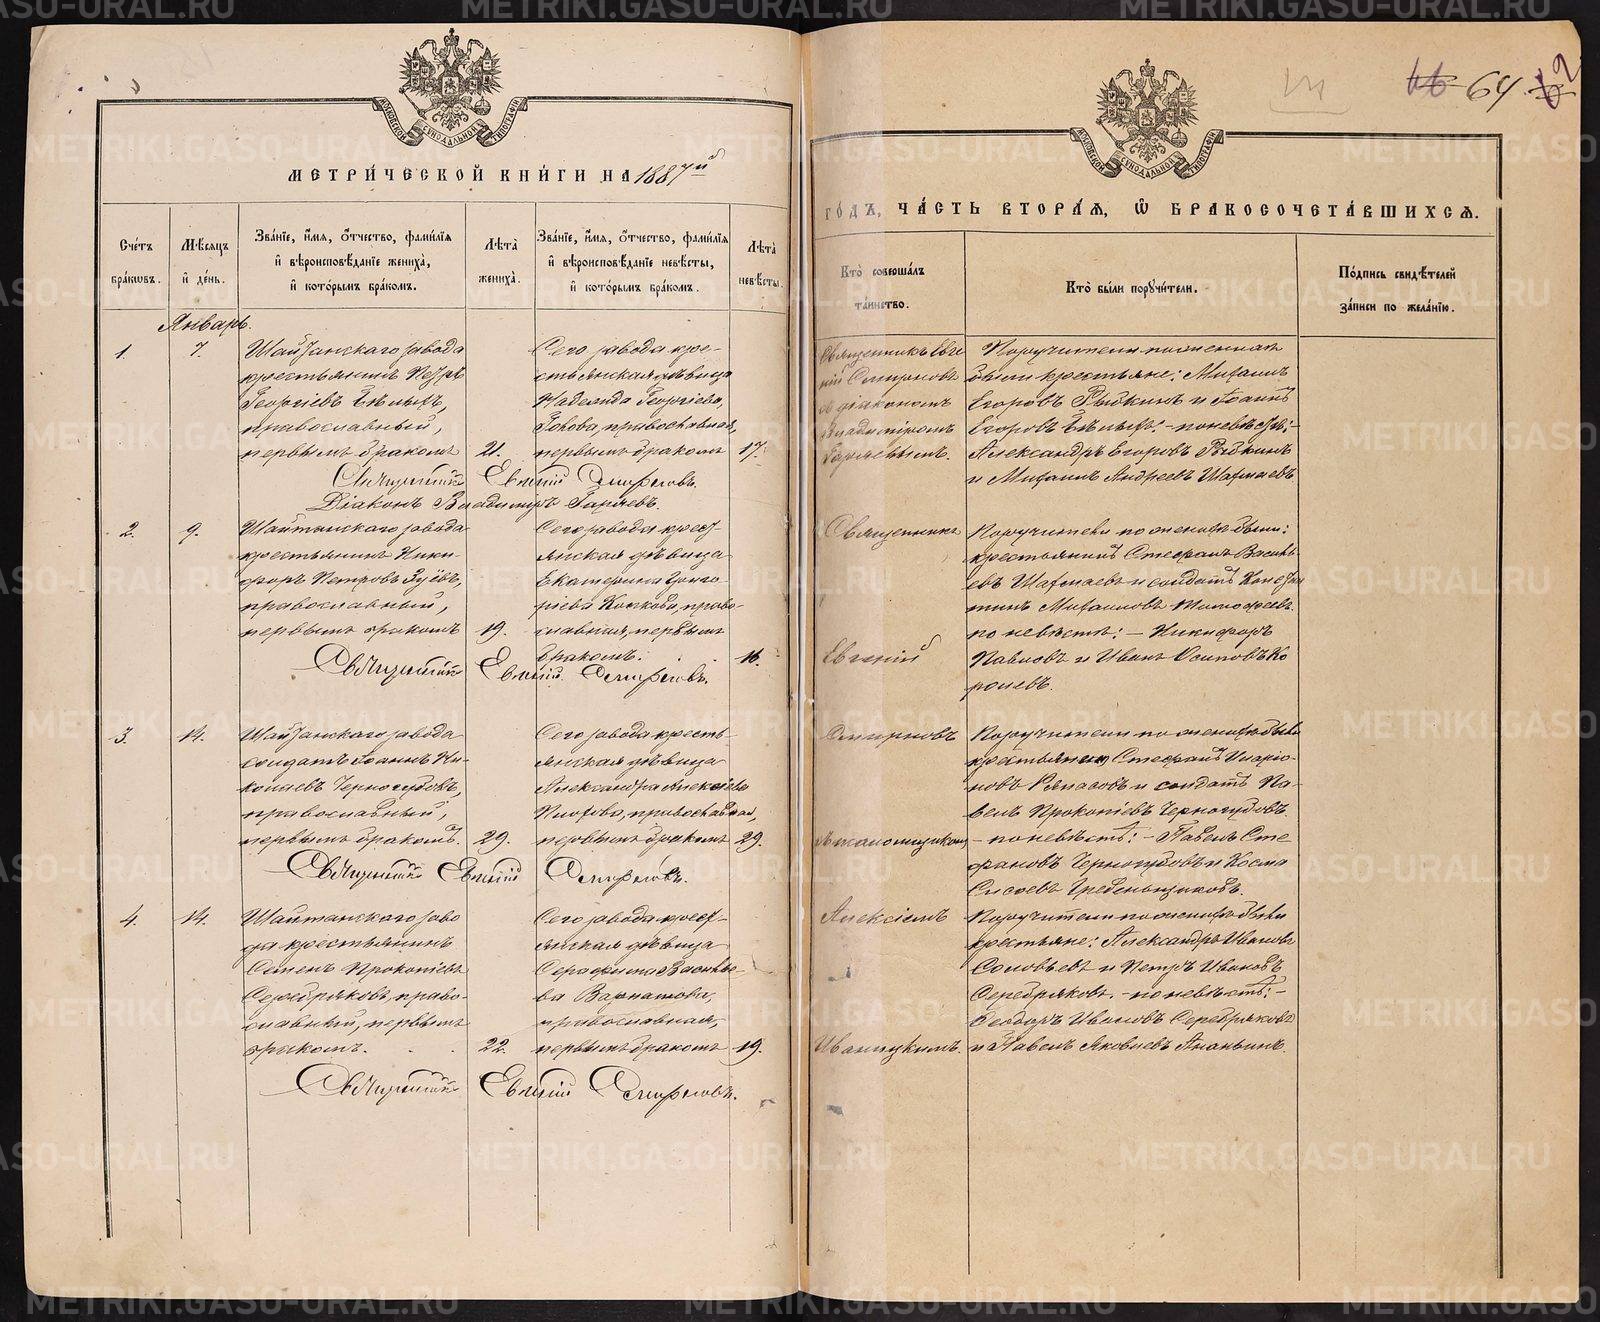 МЕТРИ́ЧЕСКОЙ КНИ́ГИ НА 1887й
Сче́тъ бра́ковъ.
Мѣ́сяцъ и де́нь.
Зва́нїе, и́мя, ѻ҆́тчество, фами́лїя
и҆ вѣроисповѣ́данїе жениха̀,
и҆ кото́рымъ бра́комъ.
Лѣ́та жениха̀.
Зва́нїе, и́мя, ѻ҆́тчество, фами́лїя
и҆ вѣроисповѣ́данїе невѣ́сты,
и҆ кото́рымъ бра́комъ.
Лѣ́та невѣ́сты.
Январь.
1.
7.
Шайтанскаго завода
крестьянинъ Петръ
Георгіевъ Бѣлыхъ,
православный,
первымъ бракомъ
21.
Сего завода кре-
стьянская дѣвица
Надежда Георгіева,
православная,
первымъ бракомъ
17.
Священникъ Евгеній Смирновъ.
Діаконъ Владиміръ Гаряевъ.
2.
9.
Шайтанскаго завода
крестьянинъ Ники-
форъ Петровъ Зуевъ,
православный,
первымъ бракомъ
19.
Сего завода крест-
янская дѣвица
Екатерина Григо-
ріева право-
славная, первымъ
бракомъ.
16.
Священникъ Евгеній Смирновъ.
3.
14.
Шайтанскаго завода
солдатъ Іоаннъ Ни-
колаевъ Черногубовъ,
православный,
первымъ бракомъ.
29.
Сего завода кресть-
янская дѣвица
Александра Алексіева
православная,
первымъ бракомъ
29.
Священникъ Евгеній Смирновъ.
4.
14.
Шайтанскаго заво
да крестьянинъ
Семенъ Прокопіевъ
Серебряковъ, право-
славный, первымъ
бракомъ.
22.
Сего завода крест-
янская дѣвица
Серафима Василье-
ва Варнакова,
православная,
первымъ бракомъ
19.
Священникъ Евгеній Смирновъ.
64
ГО́ДЪ, ЧА́СТЬ ВТОРА́Я, Ѡ҆ БРАКОСОЧЕТА́ВШИХСЯ.
Кто̀ соверша́лъ
та́инство.
Кто̀ бы́ли порꙋчи́тели.
По́дпись свидѣ́телей
за́писи по жела́нїю.
Священникъ Евге
ній Смирновъ
съ діакономъ
Владиміромъ
Гаряевымъ.
Поручители по женихѣ
были крестьяне: Михаилъ
Егоровъ Рыбкинъ и Іоаннъ
Егоровъ Бѣлыхъ; - по невѣстѣ: -
Александръ Егоровъ Рыбкинъ
и Михаилъ Андреевъ Шахмаевъ
Священникъ
Евгеній
Поручители по женихѣ были:
крестьянинъ Стефанъ Василь
евъ Шахмаевъ и солдатъ Констан
тинъ Михаиловъ Тимофеевъ.
по невѣстѣ: - Никифоръ
Павловъ и Иванъ Осиповъ Ко
ролевъ.
Смирновъ
Псаломщикомъ
Поручители по женихѣ были
крестьянинъ Стефанъ Иларіо-
новъ Ряпасовъ и солдатъ Па-
велъ Прокопіевъ Черногубовъ
- по невѣстѣ: - Павелъ Сте
фановъ Черногубовъ и Косма
Сысоевъ Гребеньщиковъ.
Алексіемъ
Иваницкимъ.
Поручители по женихѣ были
крестьяне: Александръ Ивановъ
Соловьевъ и Петръ Ивановъ
Серебряковъ. - по невѣстѣ: -
Ѳеодоръ Ивановъ Серебряковъ
и Павелъ Яковлевъ Ананьинъ.
METRIKI.GASO-URAL.RU